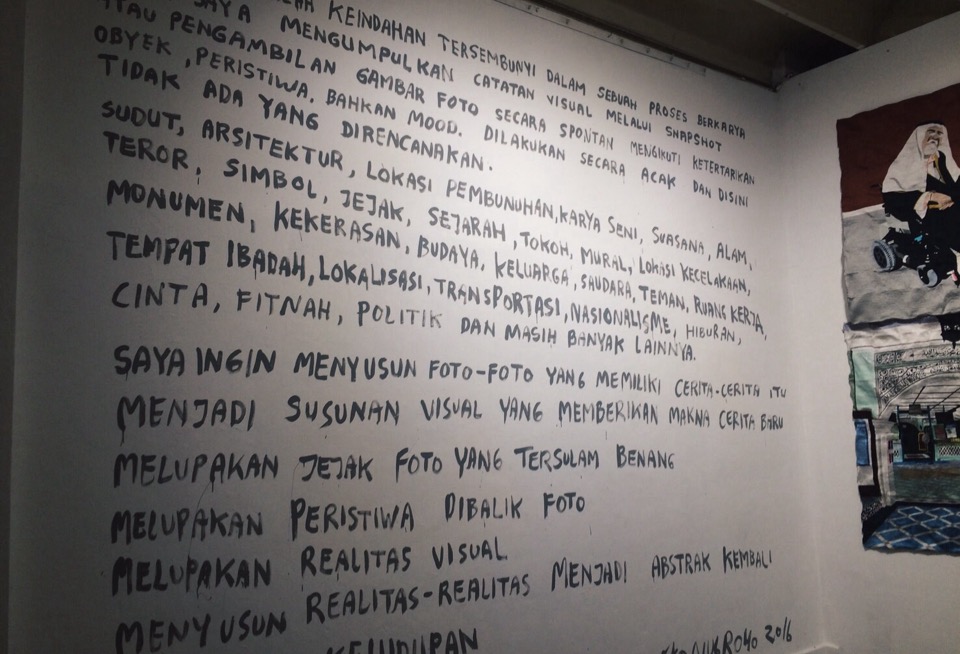 KEINDAHAN TERSEMBUNYI DALAM SEBUAH PROSES BERKARYA
SAYA MENGUMPULKAN CATATAN VISUAL MELALUI SNAPSHOT
ATAU PENGAMBILAN GAMBAR FOTO SECARA SPONTAN MENGIKUTI KETERTARIKAN
OBYEK, PERISTIWA. BAHKAN MOOD. DILAKUKAN SECARA ACAK DAN DISINI
TIDAK ADA YANG DIRENCANAKAN.
SUDUT, ARSITEKTUR, LOKASI PEMBUNUHAN, KARYA SENI, SUASANA, ALAM,
TEROR, SIMBOL, JEJAK, SEJARAH, TOKOH, MURAL, LOKASI KECELAKAAN,
MONUMEN, KEKERASAN, BUDAYA, KELUARGA, SAUDARA, TEMAN, RUANG KERJA,
TEMPAT IBADAH, LOKALISASI, TRANSPORTASI, NASIONALISME, HIBURAN,
CINTA, FITNAH, POLITIK DAN MASIH BANYAK LAINNYA.
SAYA INGIN MENYUSUN FOTO-FOTO YANG MEMILIKI CERITA-CERITA ITU
MENJADI SUSUNAN VISUAL YANG MEMBERIKAN MAKNA CERITA BARU
MELUPAKAN JEJAK FOTO YANG TERSULAM BENANG
MELUPAKAN PERISTIWA DIBALIK FOTO
MELUPAKAN REALITAS VISUAL
MENYUSUN REALITAS-REALITAS MENJADI ABSTRAK KEMBALI
2016